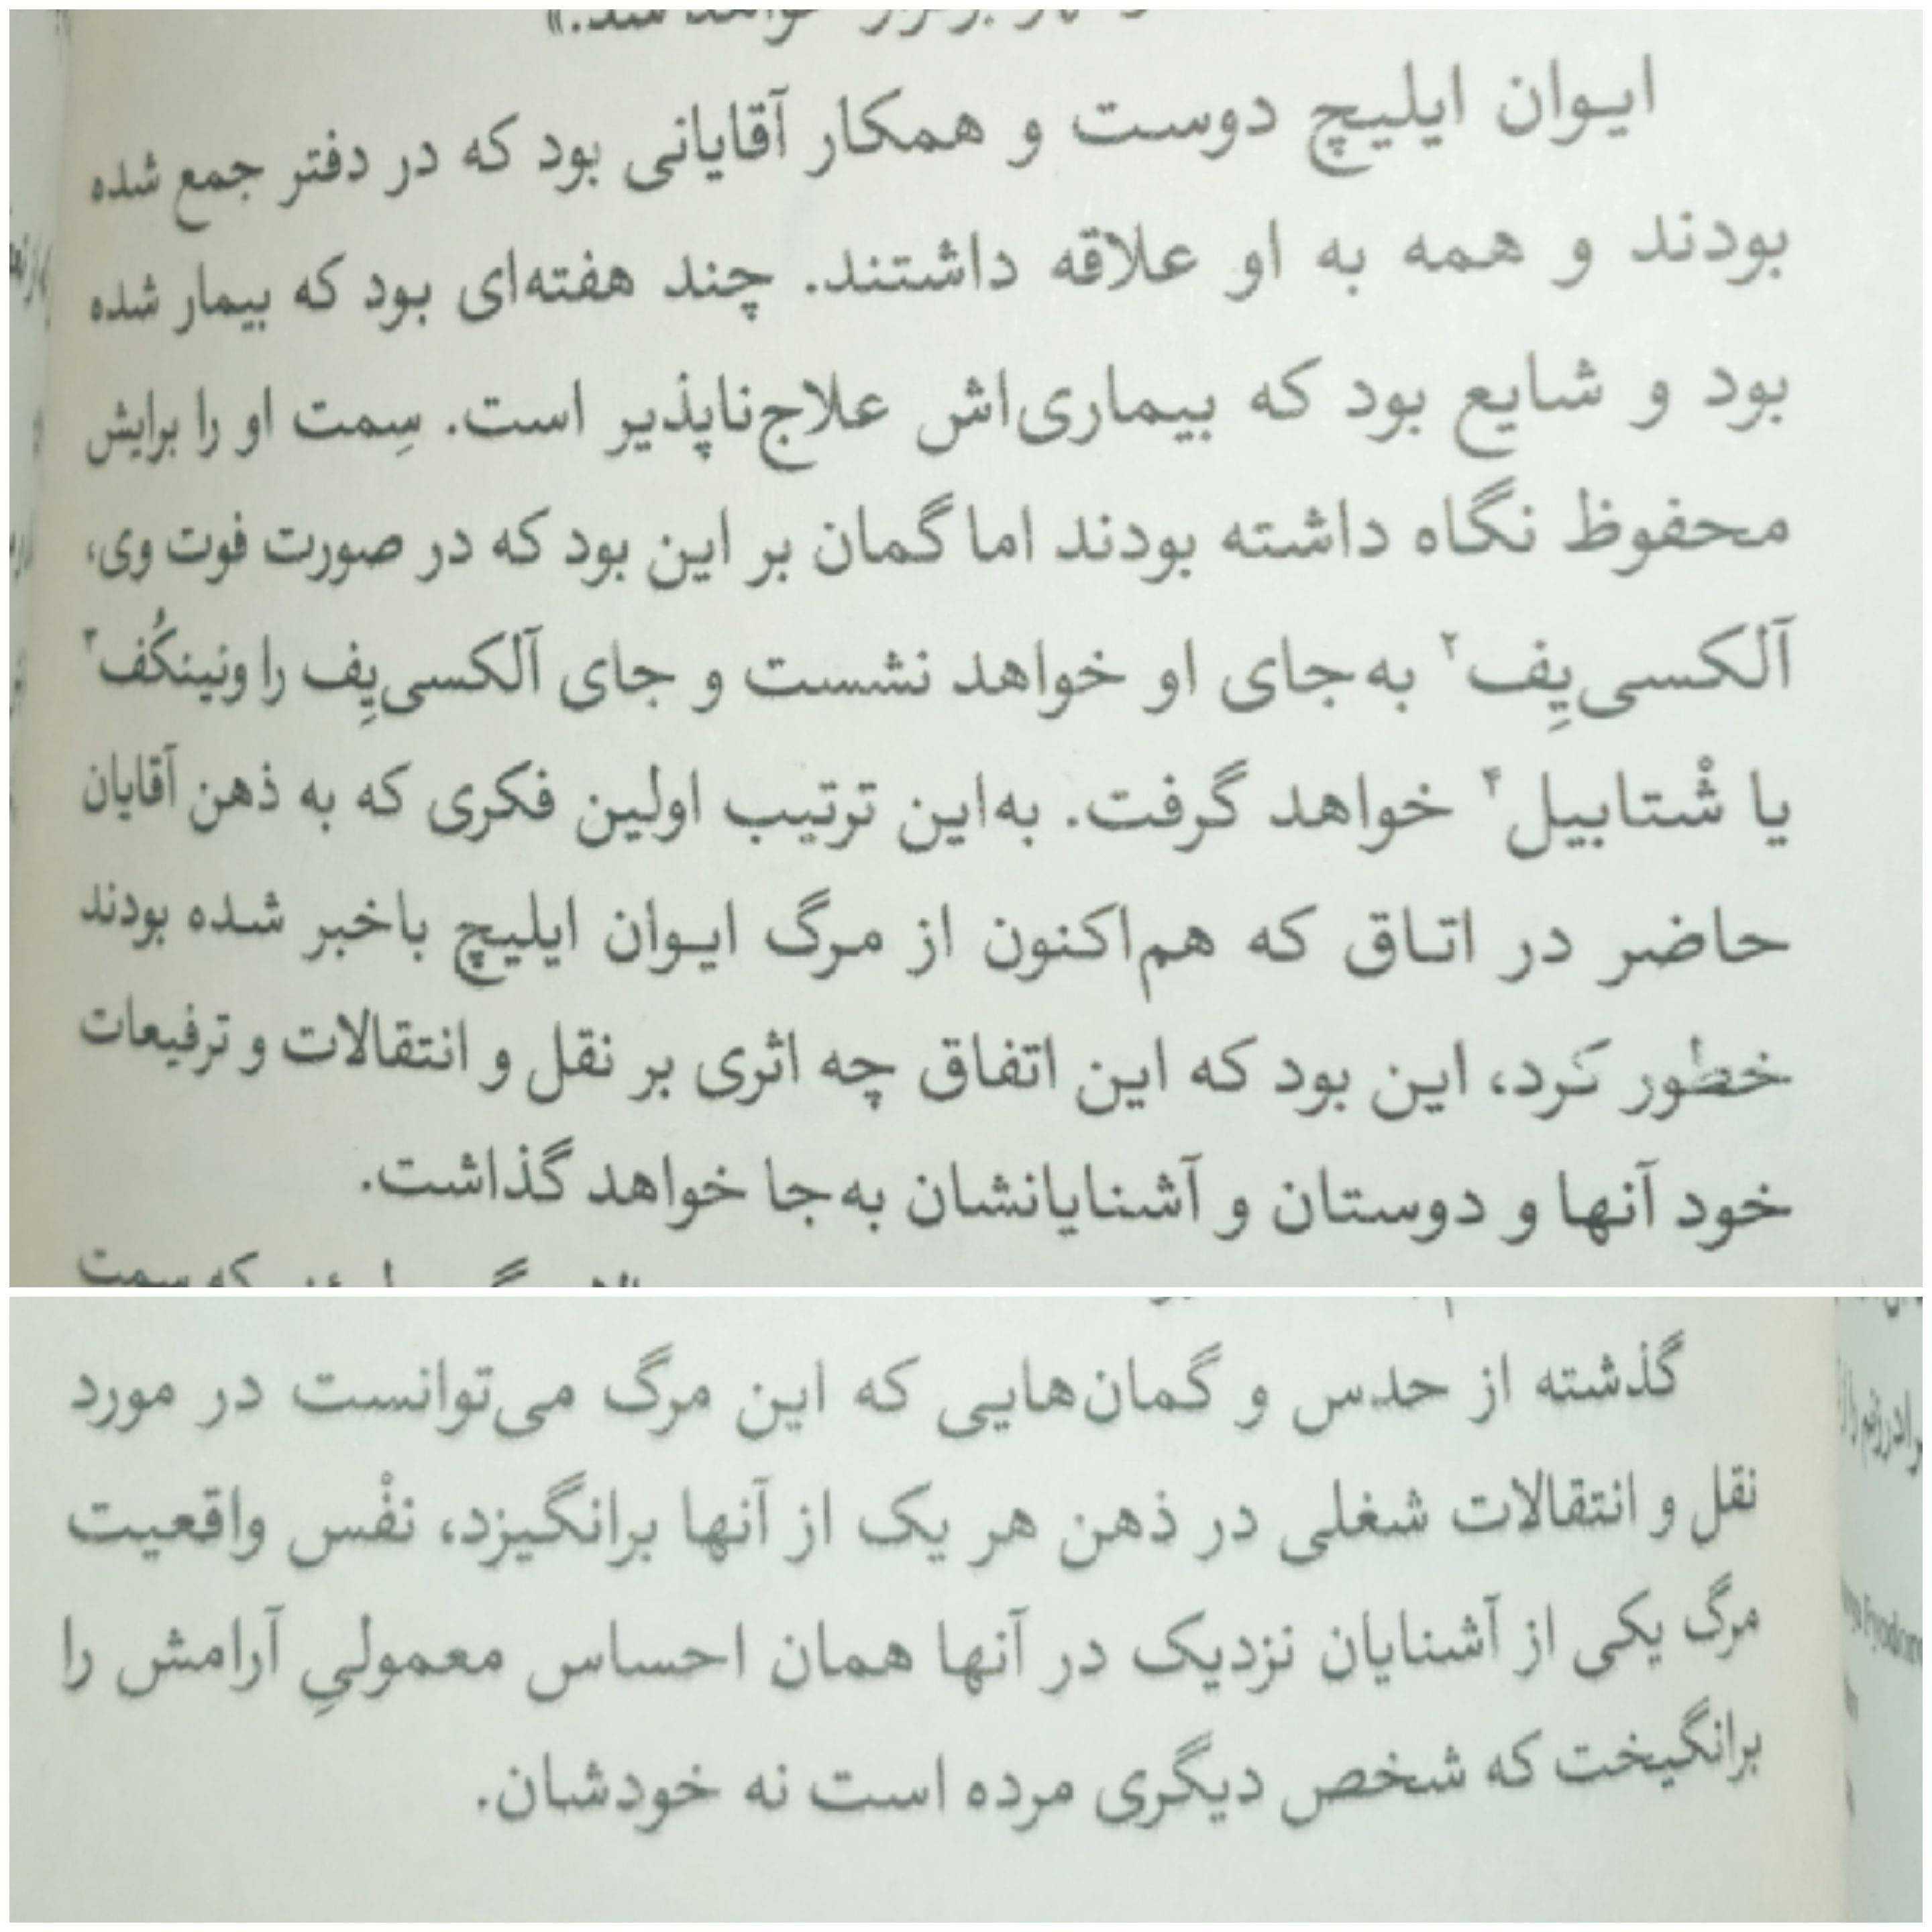 ایوان ایلیچ دوست و همکار آقایانی بود که در دفتر جمع شده
بودند و همه به او علاقه داشتند. چند هفته‌ای بود که بیمار شده
بود و شایع بود که بیماری‌اش علاج‌ناپذیر است. سِمت او را برایش
محفوظ نگاه داشته بودند اما گمان بر این بود که در صورت فوت وی،
آلکسی‌یِف۲ به‌جای او خواهد نشست و جای آلکسی‌یِف را ونینکُف۳
یا شْتابیل۴ خواهد گرفت. به‌این ترتیب اولین فکری که به ذهن آقایان
حاضر در اتاق که هم‌اکنون از مرگ ایوان ایلیچ باخبر شده بودند
خطور کرد، این بود که این اتفاق چه اثری بر نقل و انتقالات و ترفیعات
خود آنها و دوستان و آشنایانشان به‌جا خواهد گذاشت.
که سمت
گذشته از حدس و گمان‌هایی که این مرگ می‌توانست در مورد
نقل و انتقالات شغلی در ذهن هر یک از آنها برانگیزد، نفْس واقعیت
مرگ یکی از آشنایان نزدیک در آنها همان احساس معمولیِ آرامش را
برانگیخت که شخص دیگری مرده است نه خودشان.